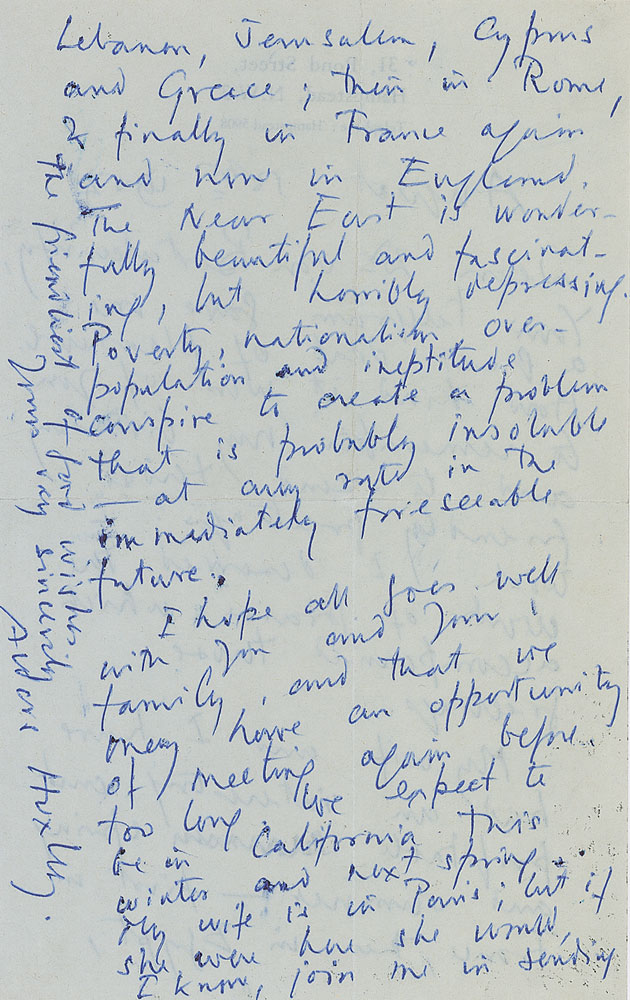 Lebanon, Jerusalem, Cyprus
and Greece; then in Rome,
& finally in France again
and now in England.
The Near East is wonder-
fully beautiful and fascinat-
ing, but horribly depressing.
Poverty, nationalism, over-
population and ineptitude
conspire to create a problem
that is probably insoluble
— at any rate in the
immediately foreseeable
future.
I hope all goes well
with you and your
family, and that we
may have an opportunity
of meeting again before
too long. We expect to
be in California this
winter and next spring.
My wife is in Paris; but if
she were here she would,
I know, join me in sending
the friendliest of good wishes.
Yours very sincerely
Aldous Huxley.
31, Pond Street,
Hampstead, N.